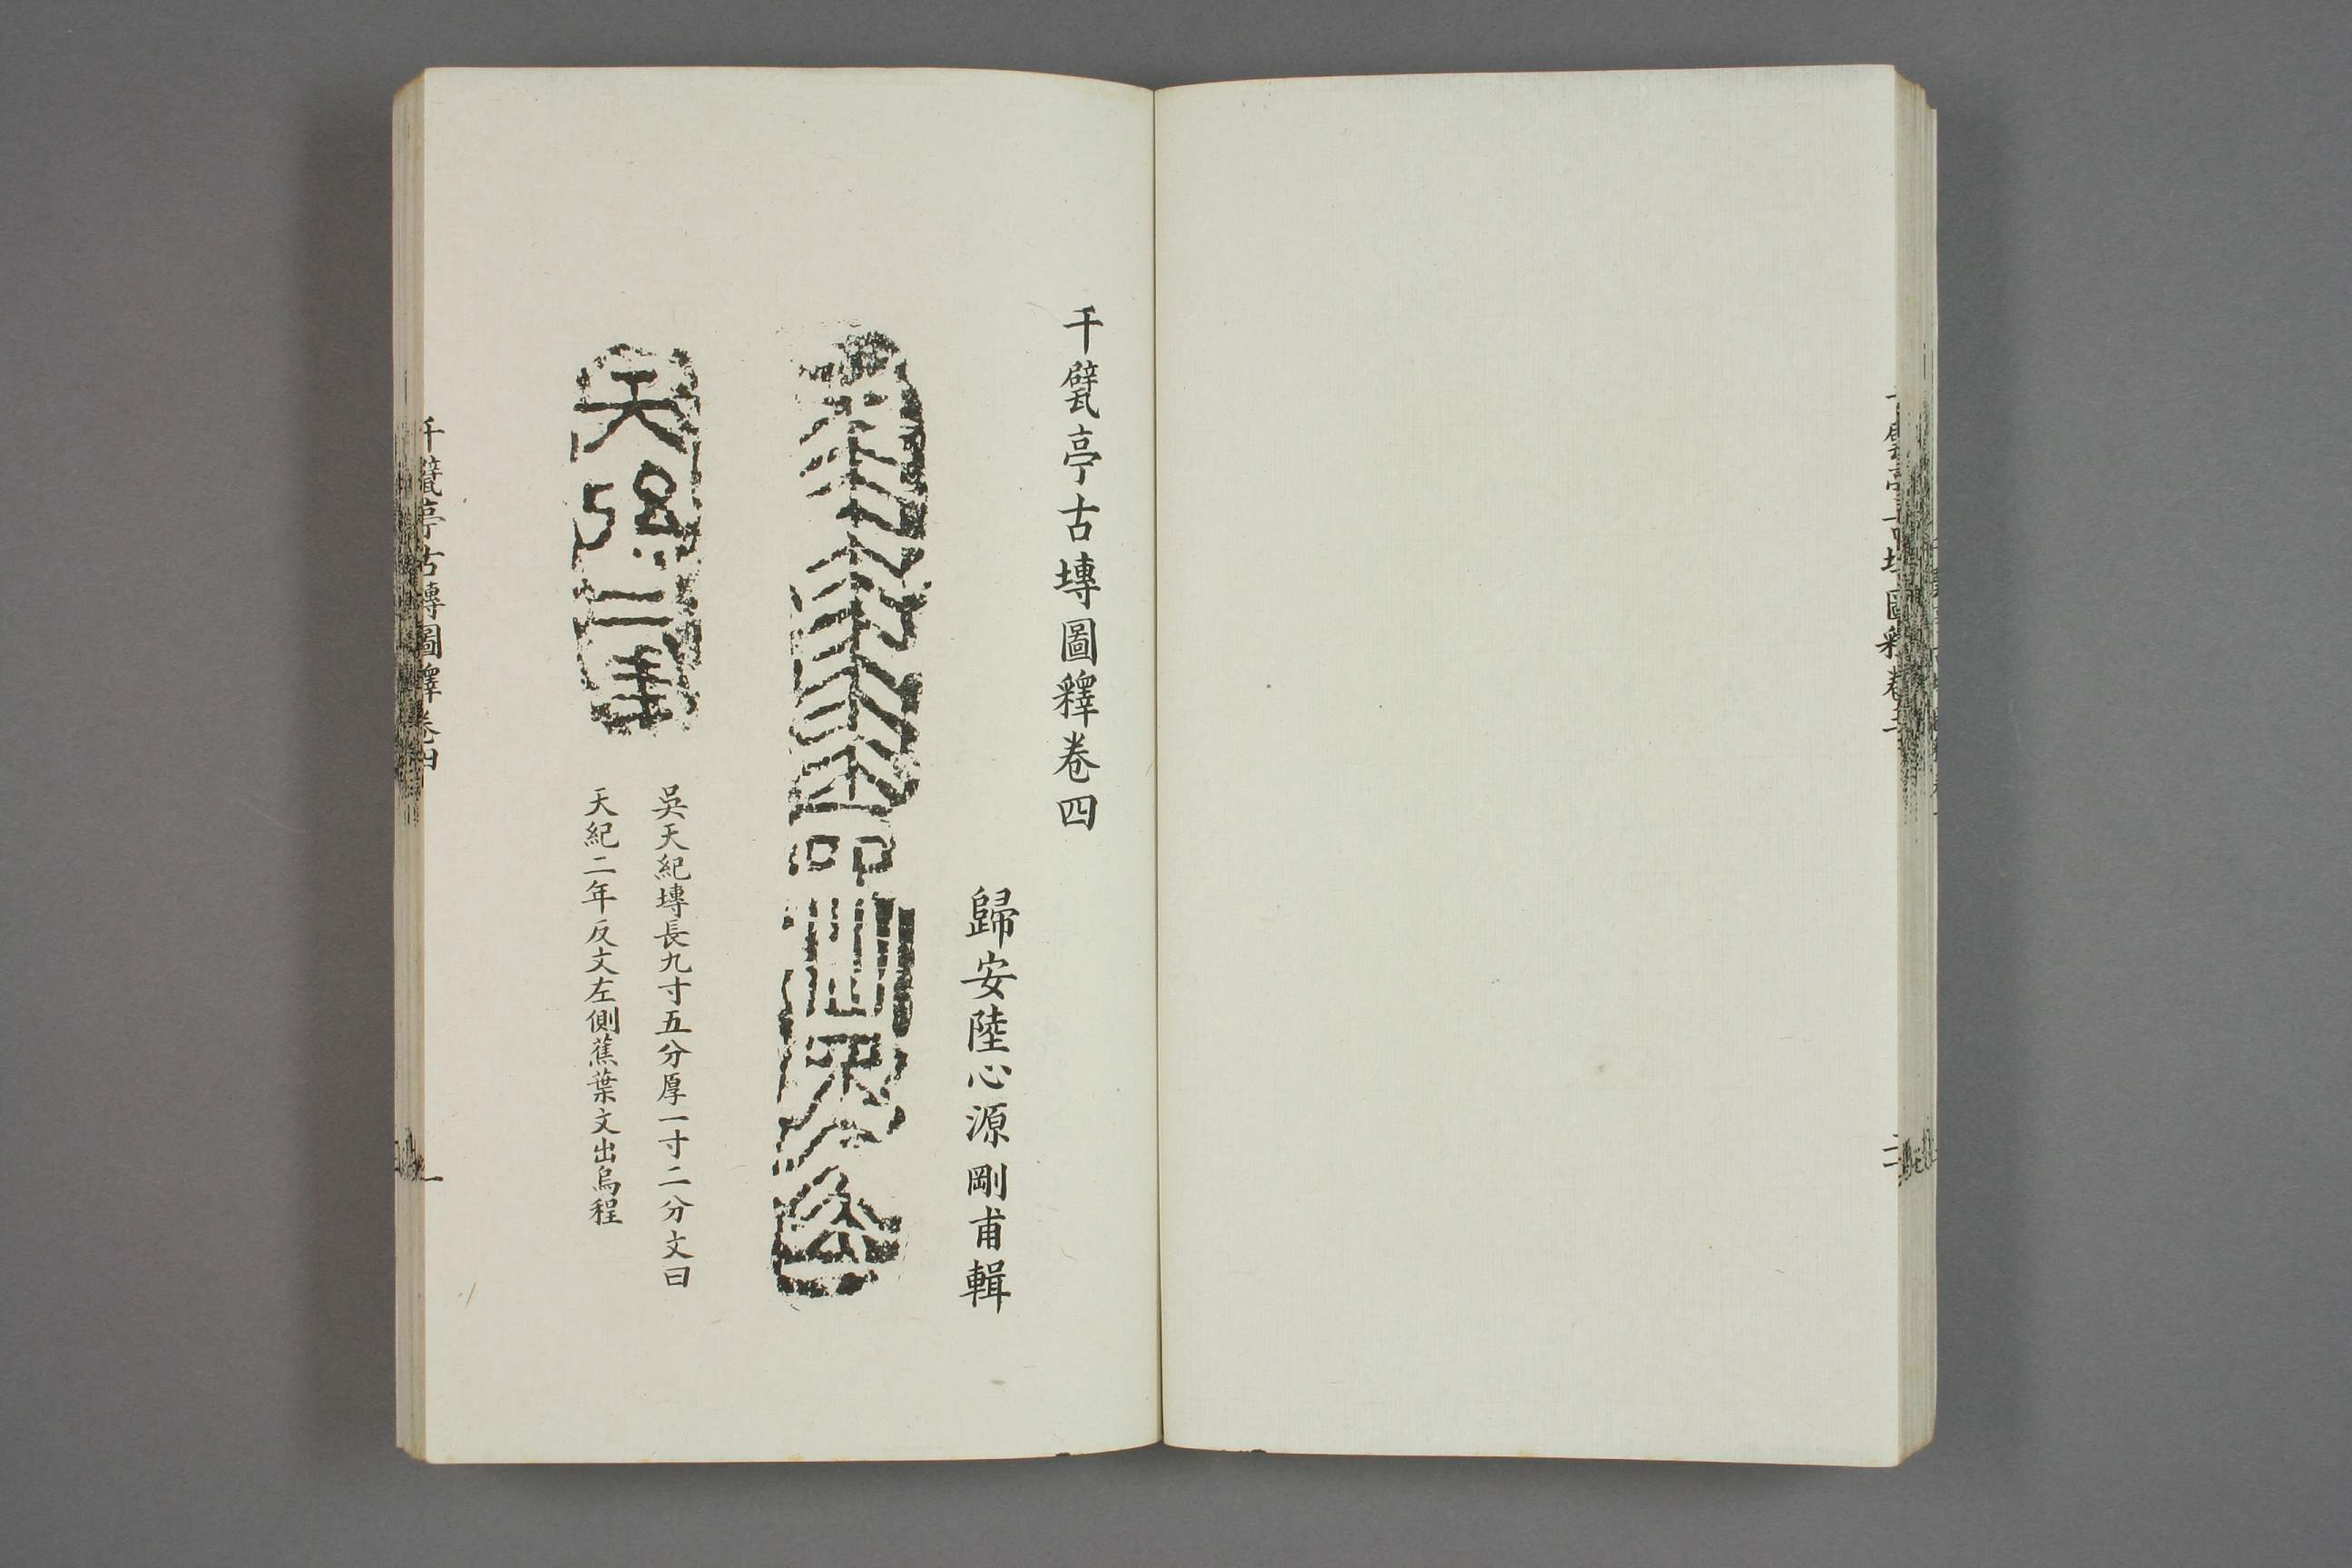 千甓亭古塼圖釋卷四
歸安陸心源剛甫輯
天紀二年
吳天紀塼長九寸五分厚一寸二分文曰
天紀二年反文左側蕉葉文出烏程
千甓亭古塼圖釋卷四
一